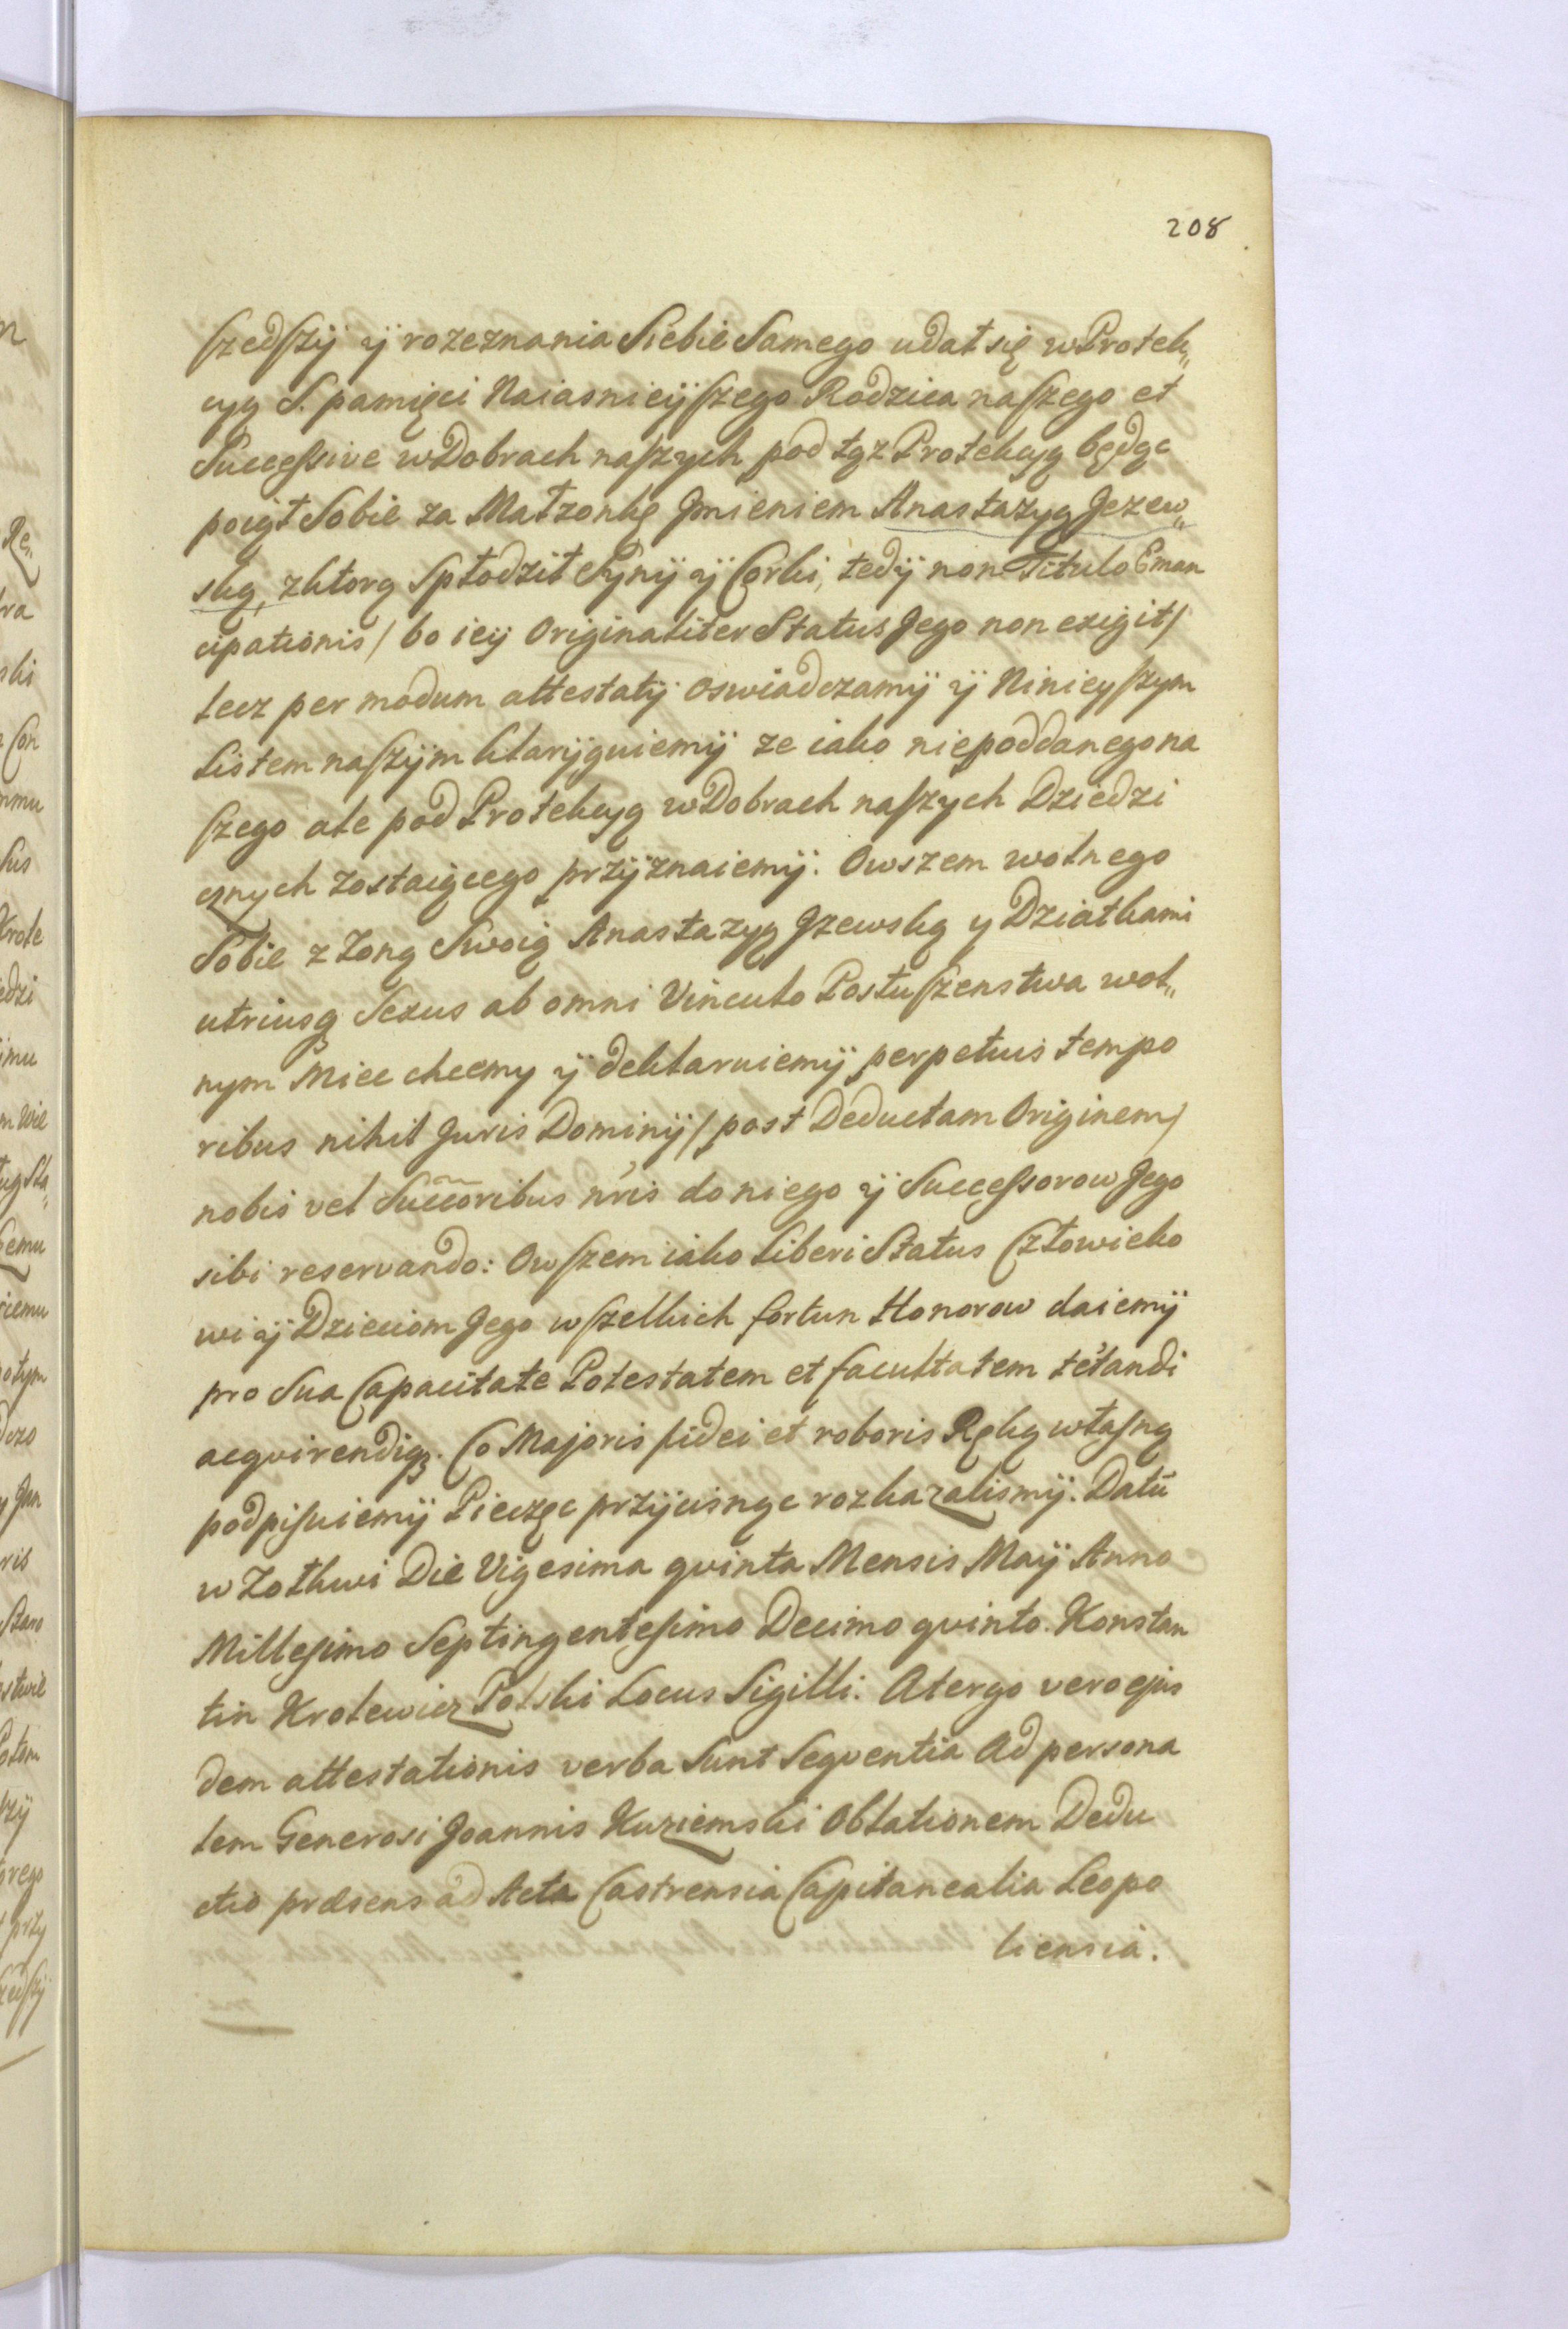 208
szedszÿ ÿ rozeznania Siebie Samego udał się w Protek„
cyą S. pamięci Naiasnieÿszego Rodzica naszego et
Successive w Dobrach naszych pod tąz Protekcyą będąc
poiął Sobie za Małzonkę Jmieniem Anastazyą Jezew„
ską, z ktorą Spłodził Synÿ ÿ Corki, tedÿ non Titulo Eman
cipationis / bo ieÿ Originaliter Status Jego non exigit /
lecz per modum attestatÿ oswiadczamÿ ÿ Ninieyszym
Listem naszÿm klarÿguiemÿ ze iako niepoddanego na
szego ale pod Protekcyą w Dobrach naszych Dziedzi
cznych zostaiącego przÿznaiemÿ. Owszem wolnego
Sobie z Zoną Swoią Anastazyą Jzewską y Dziatkami
utriusq Sexus ab omni Vinculo Postuszenstwa wol„
nym Miec chcemy ÿ deklaruiemÿ perpetuis tempo
ribus nihil Juris Dominÿ / post Deductam Originem /
nobis vel Succoribus nris do niego ÿ Successorow Jego
sibi reservando: Owszem iako Liberi Status Człowieko
wi ÿ Dzieciom Jego wszelkich fortun Honorow daiemÿ
pro Sua Capacitate Potestatem et facultatem tetandi
acqvirendiq. Co Majoris fidei et roboris Ręką własną
podpisuiemÿ Pieczęc przÿcisnąc rozkazalismÿ. Datū
w Zołkwi Die Vigesima qvinta Mensis Maÿ Anno
Millesimo Septingentesimo Decimo qvinto. Konstan
tin Krolewicz Polski Locus Sigilli. A tergo vero ejus
dem attestationis verba Sunt Seqventia Ad persona
lem Generosi Joannis Kuziemski Oblationem Dedu
ctio præsens ad Acta Castrensia Capitanealia Leopo
liensia.